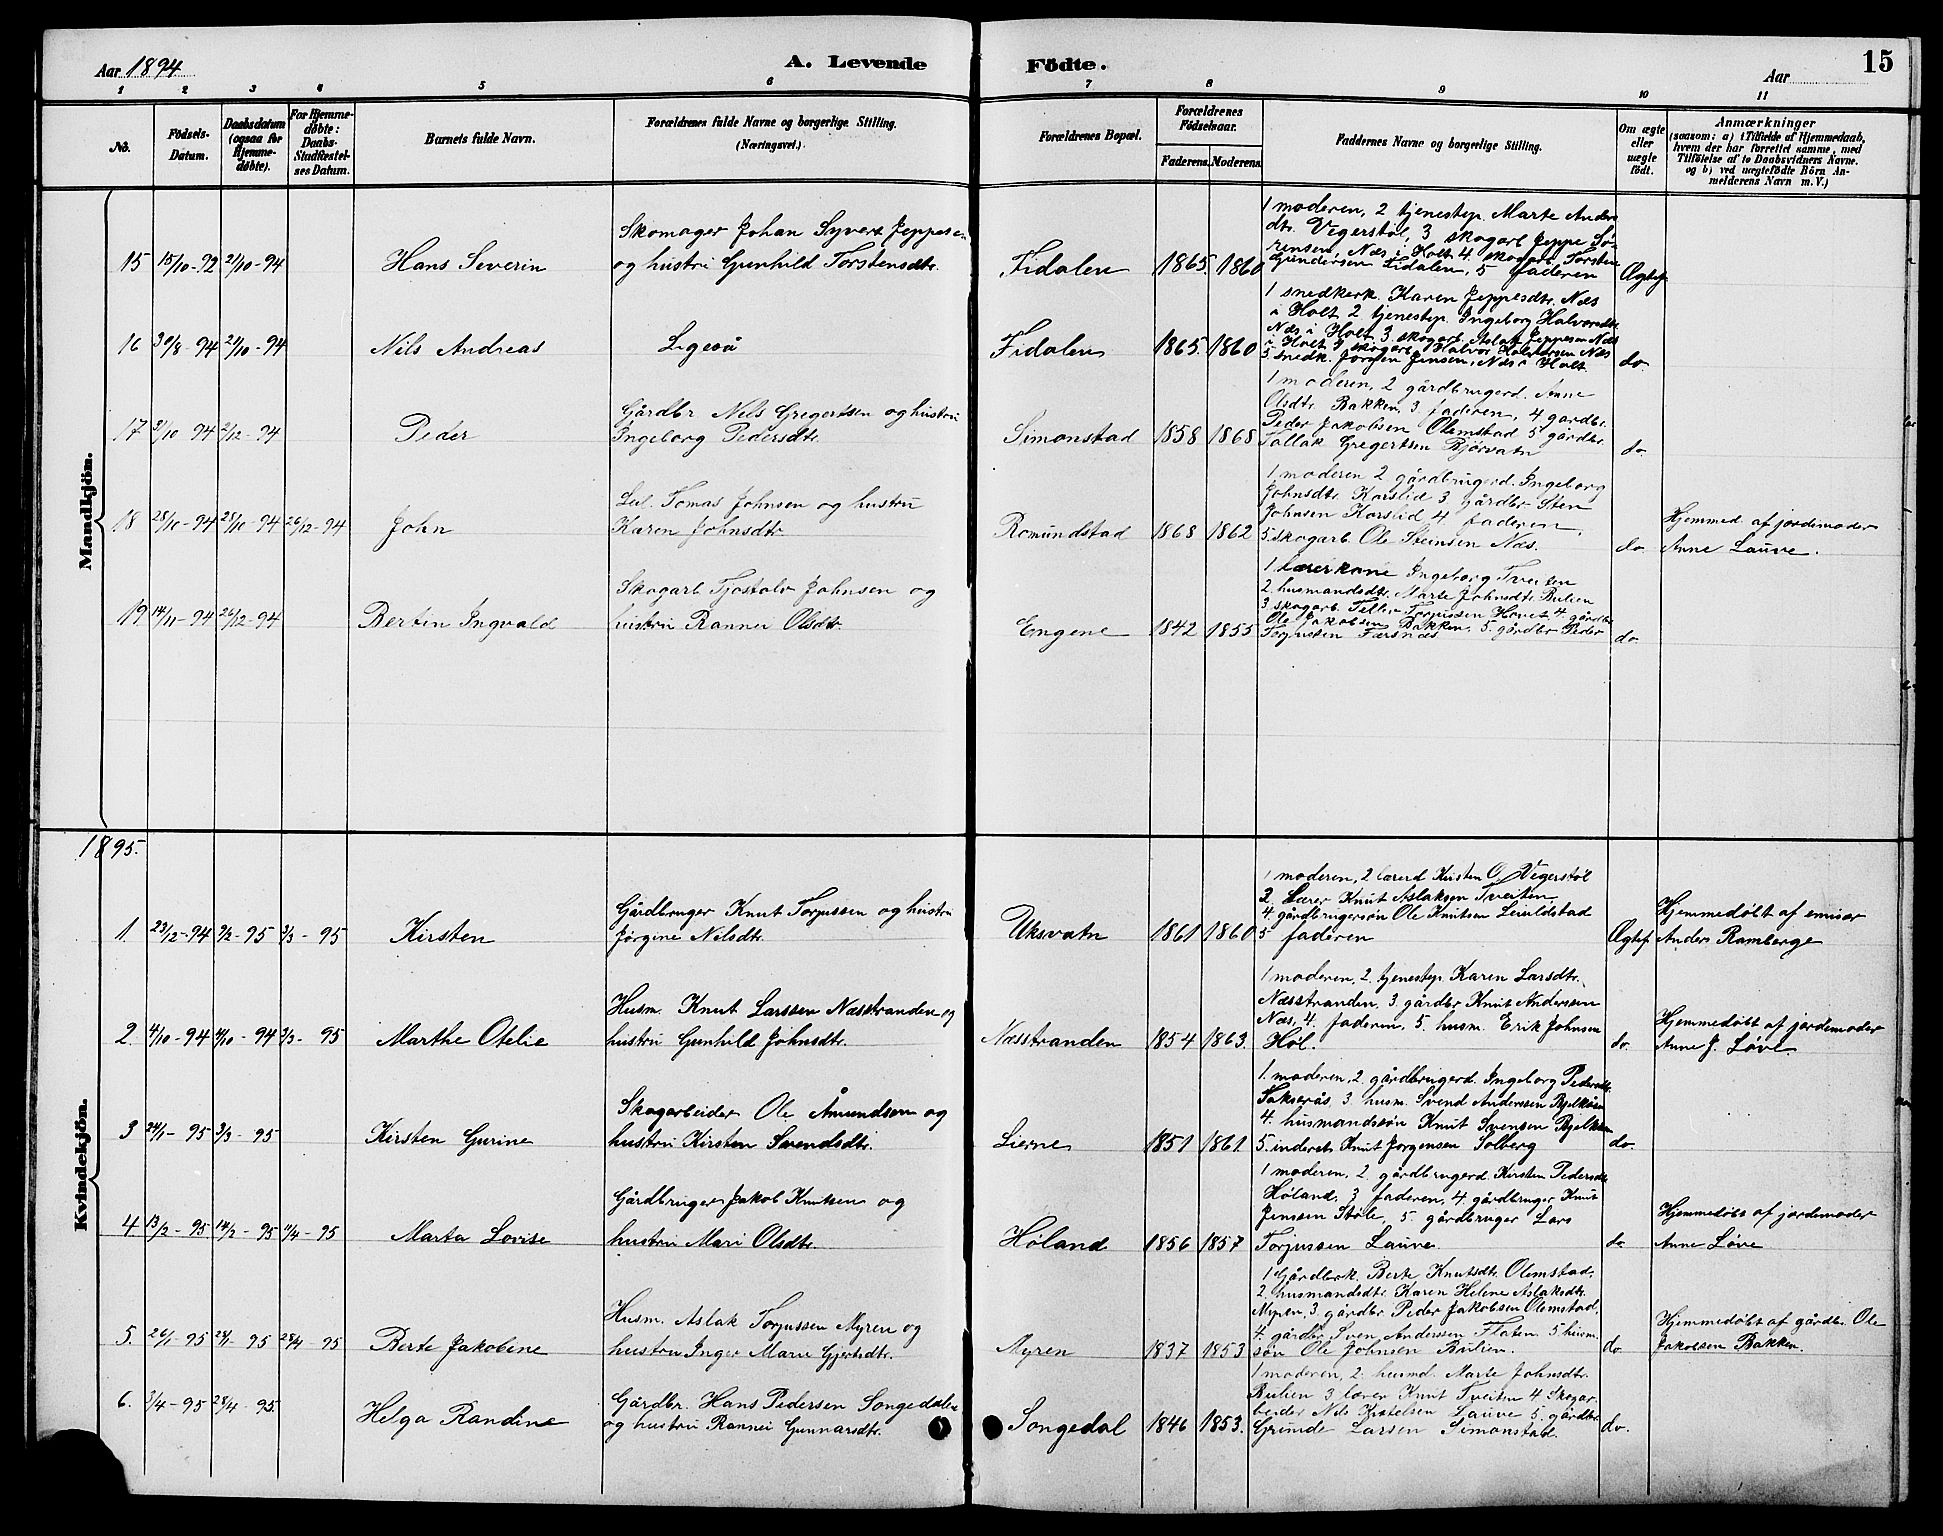 Aar 1894
A. Levende
Födte.
Aar
15
1 2 3 4 5 6 7 8 9 10 11
No.
Födsels-
Datum.
Daabsdatum
(ogsaa for
Hjemme-
döbte).
For Hjemme-
döbte:
Daabs-
Stadfæstel-
ses Datum.
Barnets fulde Navn.
Forældrenes fulde Navne og borgerlige Stilling.
(Næringsvei.)
Forældrenes Bopæl.
Forældrenes
Födselsaar.
Faderens. Moderens.
Faddernes Navne og borgerlige Stilling.
Om ægte
eller
uægte
födt.
Anmærkninger
(saasom: a) i Tilfælde af Hjemmedaab,
hvem der har forrettet samme, med
Tilföielse af to Daabsvidners Navne.
og b) ved uægtefödte Börn An-
melderens Navn m. V.)
Mandkjön.
15 15/10-92 21/10-94
Hans Severin
Skomager Johan Syvert Jeppesen
og hustru Gunhild Torstensdtr.
Fidalen 1865. 1860
1 moderen, 2 tjenestep. Marte Anders
dtr. Vegerstøl, 3 skogarb Jeppe Sö-
rensen, Næs i Holt 4. skogarb. Torsten
Gundersen Fidalen, 5 faderen
Ægtef.
16 30/8-94 21/10-94
Nils Andreas
Ligeså
Fidalen 1865. 1860
1 snedkerk. Karen Jeppesdtr. Næs
i Holt 2 tjenestep. Ingeborg Halvorsdtr.
Næs i Holt 3 skogarb. Aslak Jeppesen Næs
i Holt 4 skogarb. Halvor Halvorsen Næs
5 snedk. Jörgen Jensen, Næs i Holt.
do.
17 3/10-94 2/12-94
Peder
Gårdbr. Nels Gregertsen og hustru
Ingeborg Pedersdtr.
Simonstad 1858 1868
1 moderen, 2 gårdbrugerd. Anne
Olsdtr. Bakken, 3 faderen, 4 gårdbr.
Peder Jakobsen Olemstad 5 gårdbr.
Tallak Gregertsen Bjørvatn
do.
18 28/10-94 28/10-94 26/12-94
John
Tomas Johnsen og hustru
Karen Johnsdtr.
Romundstad 1868 1862
1 moderen 2 gårdbrugerd. Ingeborg
Johnsdtr. Korslid 3 gårdbr. Sten
Johnsen Korslid 4. faderen,
5. skogarb. Ole Steinsen Næs.
do.
Hjemmed. af jordemoder
Anne Lauve.
19 14/11-94 26/12-94
Bertin Ingvald
Skogarb Tjostolv Johnsen og
hustru Rannei Olsdtr.
Engene 1842 1855
1 lærerkone Ingeborg Tveiten
2. husmandsdtr. Marte Johnsdtr. Bulien
3 skogarb. Tellev Torjussen Hovet 4. gårdbr
Ole Jakobsen Bakken, 5. gårdbr Peder
Torjussen Færsnæs
do.
1895.
Kvindekjön.
1. 23/12-94 3/2-95 3/3-95
Kirsten
Gårdbruger Knut Torjussen og hustru
Jørgine Nilsdtr.
Uksvatn 1861 1860
1 moderen, 2 lærerd Kirsten O. Vegerstøl
3. Lærer Knut Aslaksen Tveiten
4. gårdbrugersön Ole Knutsen Leuldstad
5 faderen
Ægtef.
Hjemmedøbt af emisær
Anders Ramberge
2 4/10-94 4/10-94 3/3-95
Marthe Otelie
Husm. Knut Larssen Næsstranden og
hustru Gunhild Johnsdtr.
Næsstranden 1854 1863.
1 moderen, 2. tjenestep. Karen Larsdtr.
Næsstranden, 3. gårdbr Knut Anderssen
Næs, 4. faderen, 5. husm. Erik Johnsen
Høl.
do.
Hjemmedøbt af jordemoder
Anne J. Løve.
3 24/1-95 3/3-95
Kirsten Gurine
Skogarbeider Ole Åmundsen og
hustru Kirsten Svendsdtr.
Lierne 1851 1861
1. moderen, 2. gårdbrugerd. Ingeborg Pedersdtr.
3. husm. Svend Anderssen
4. husmandssön Knut Svensen
5. inderst Knut Jorgensen Solberg
do.
4 13/2-95 14/2-95 11/4-95
Marta Lovise
Gårdbruger Jakob Knutsen og
hustru Mari Olsdtr.
Høland 1856 1857
1 moderen, 2 gårdbrugerd Kirsten Pedersdtr
Høland, 3 faderen, 4 gårdbruger Knut
Jenssen Støle, 5. gårdbruger Lars
Torjussen Lauve.
do
Hjemmedøbt af jordemoder
Anne Løve
5. 26/1-95 28/1-95 28/4-95
Berte Jakobine
Husm. Aslak Torjussen Myren og
hustru Inger Marie Gjertsdtr.
Myren 1837 1853
1 Gårdbrk. Berte Knutsdtr. Olemstad,
2. husmandsdtr. Karen Helene Aslaksdtr.
Myren, 3 gårdbr Peder Jakobsen Olemstad,
4. gårdbr Sven Anderssen Flaten 5 husm.
sön Ole Johnsen Bulien.
do
Hjemmedøbt af gårdbr. Ole
Jakobsen Bakken.
6. 3/4-95 28/4-95.
Helga Randine
Gårdbr. Hans Pedersen Songedalen
og hustru Rannei Gunnarsdtr.
Songedal 1846 1853.
1 moderen, 2. husmd. Marte Johnsdtr.
Bulien 3 lærer Knut Tveiten 4 Skogar-
beider Nils Lauve 5. gårdbr
Grunde Larsen Simonstad.
do.